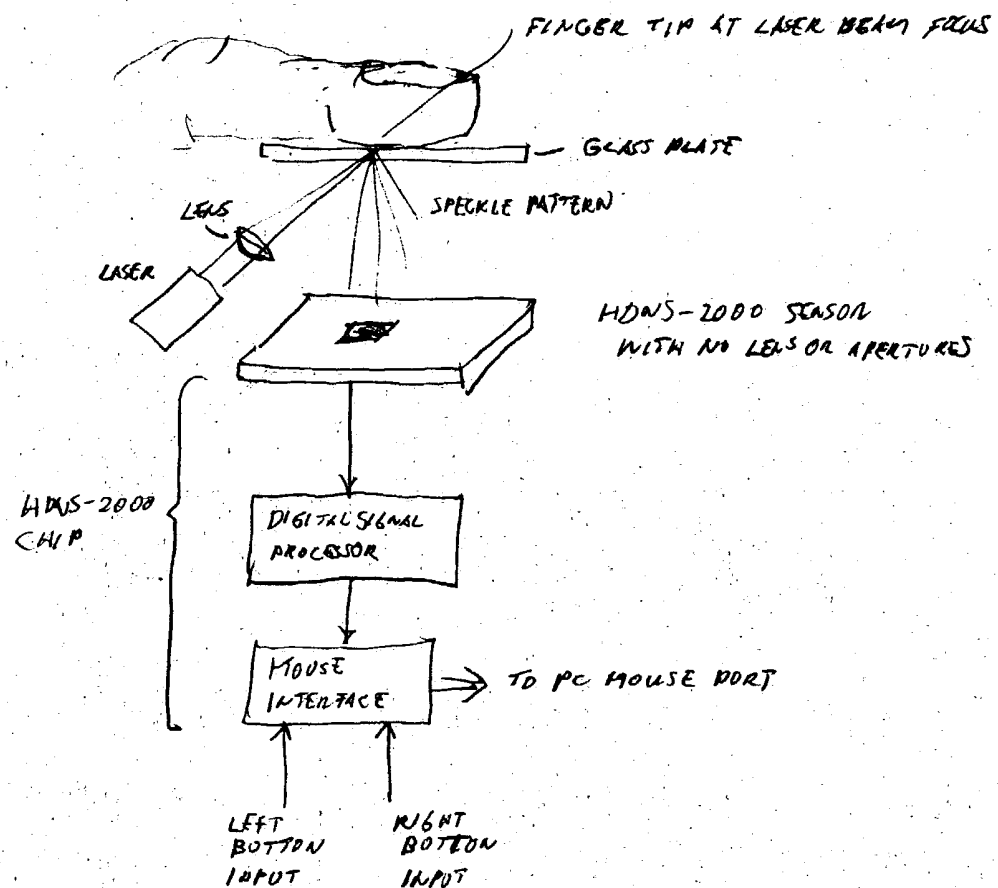 FINGER TIP AT LASER BEAM FOCUS
GLASS PLATE
SPECKLE PATTERN
LENS
LASER
HDNS-2000 SENSOR
WITH NO LENS OR APERTURES
HDNS-2000
CHIP
DIGITAL SIGNAL
PROCESSOR
MOUSE
INTERFACE
TO PC MOUSE PORT
LEFT
BOTTON
INPUT
RIGHT
BOTTON
INPUT